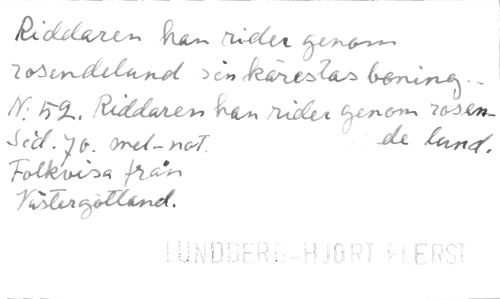 Riddaren han rider genom
rosendelund sin kärestas boning..
N. 52. Riddaren han rider genom rosen-
Sid. 70. mel-not. de lund.
Folkvisa från
Västergötland.
LUNDBERG-HJORT FLERST